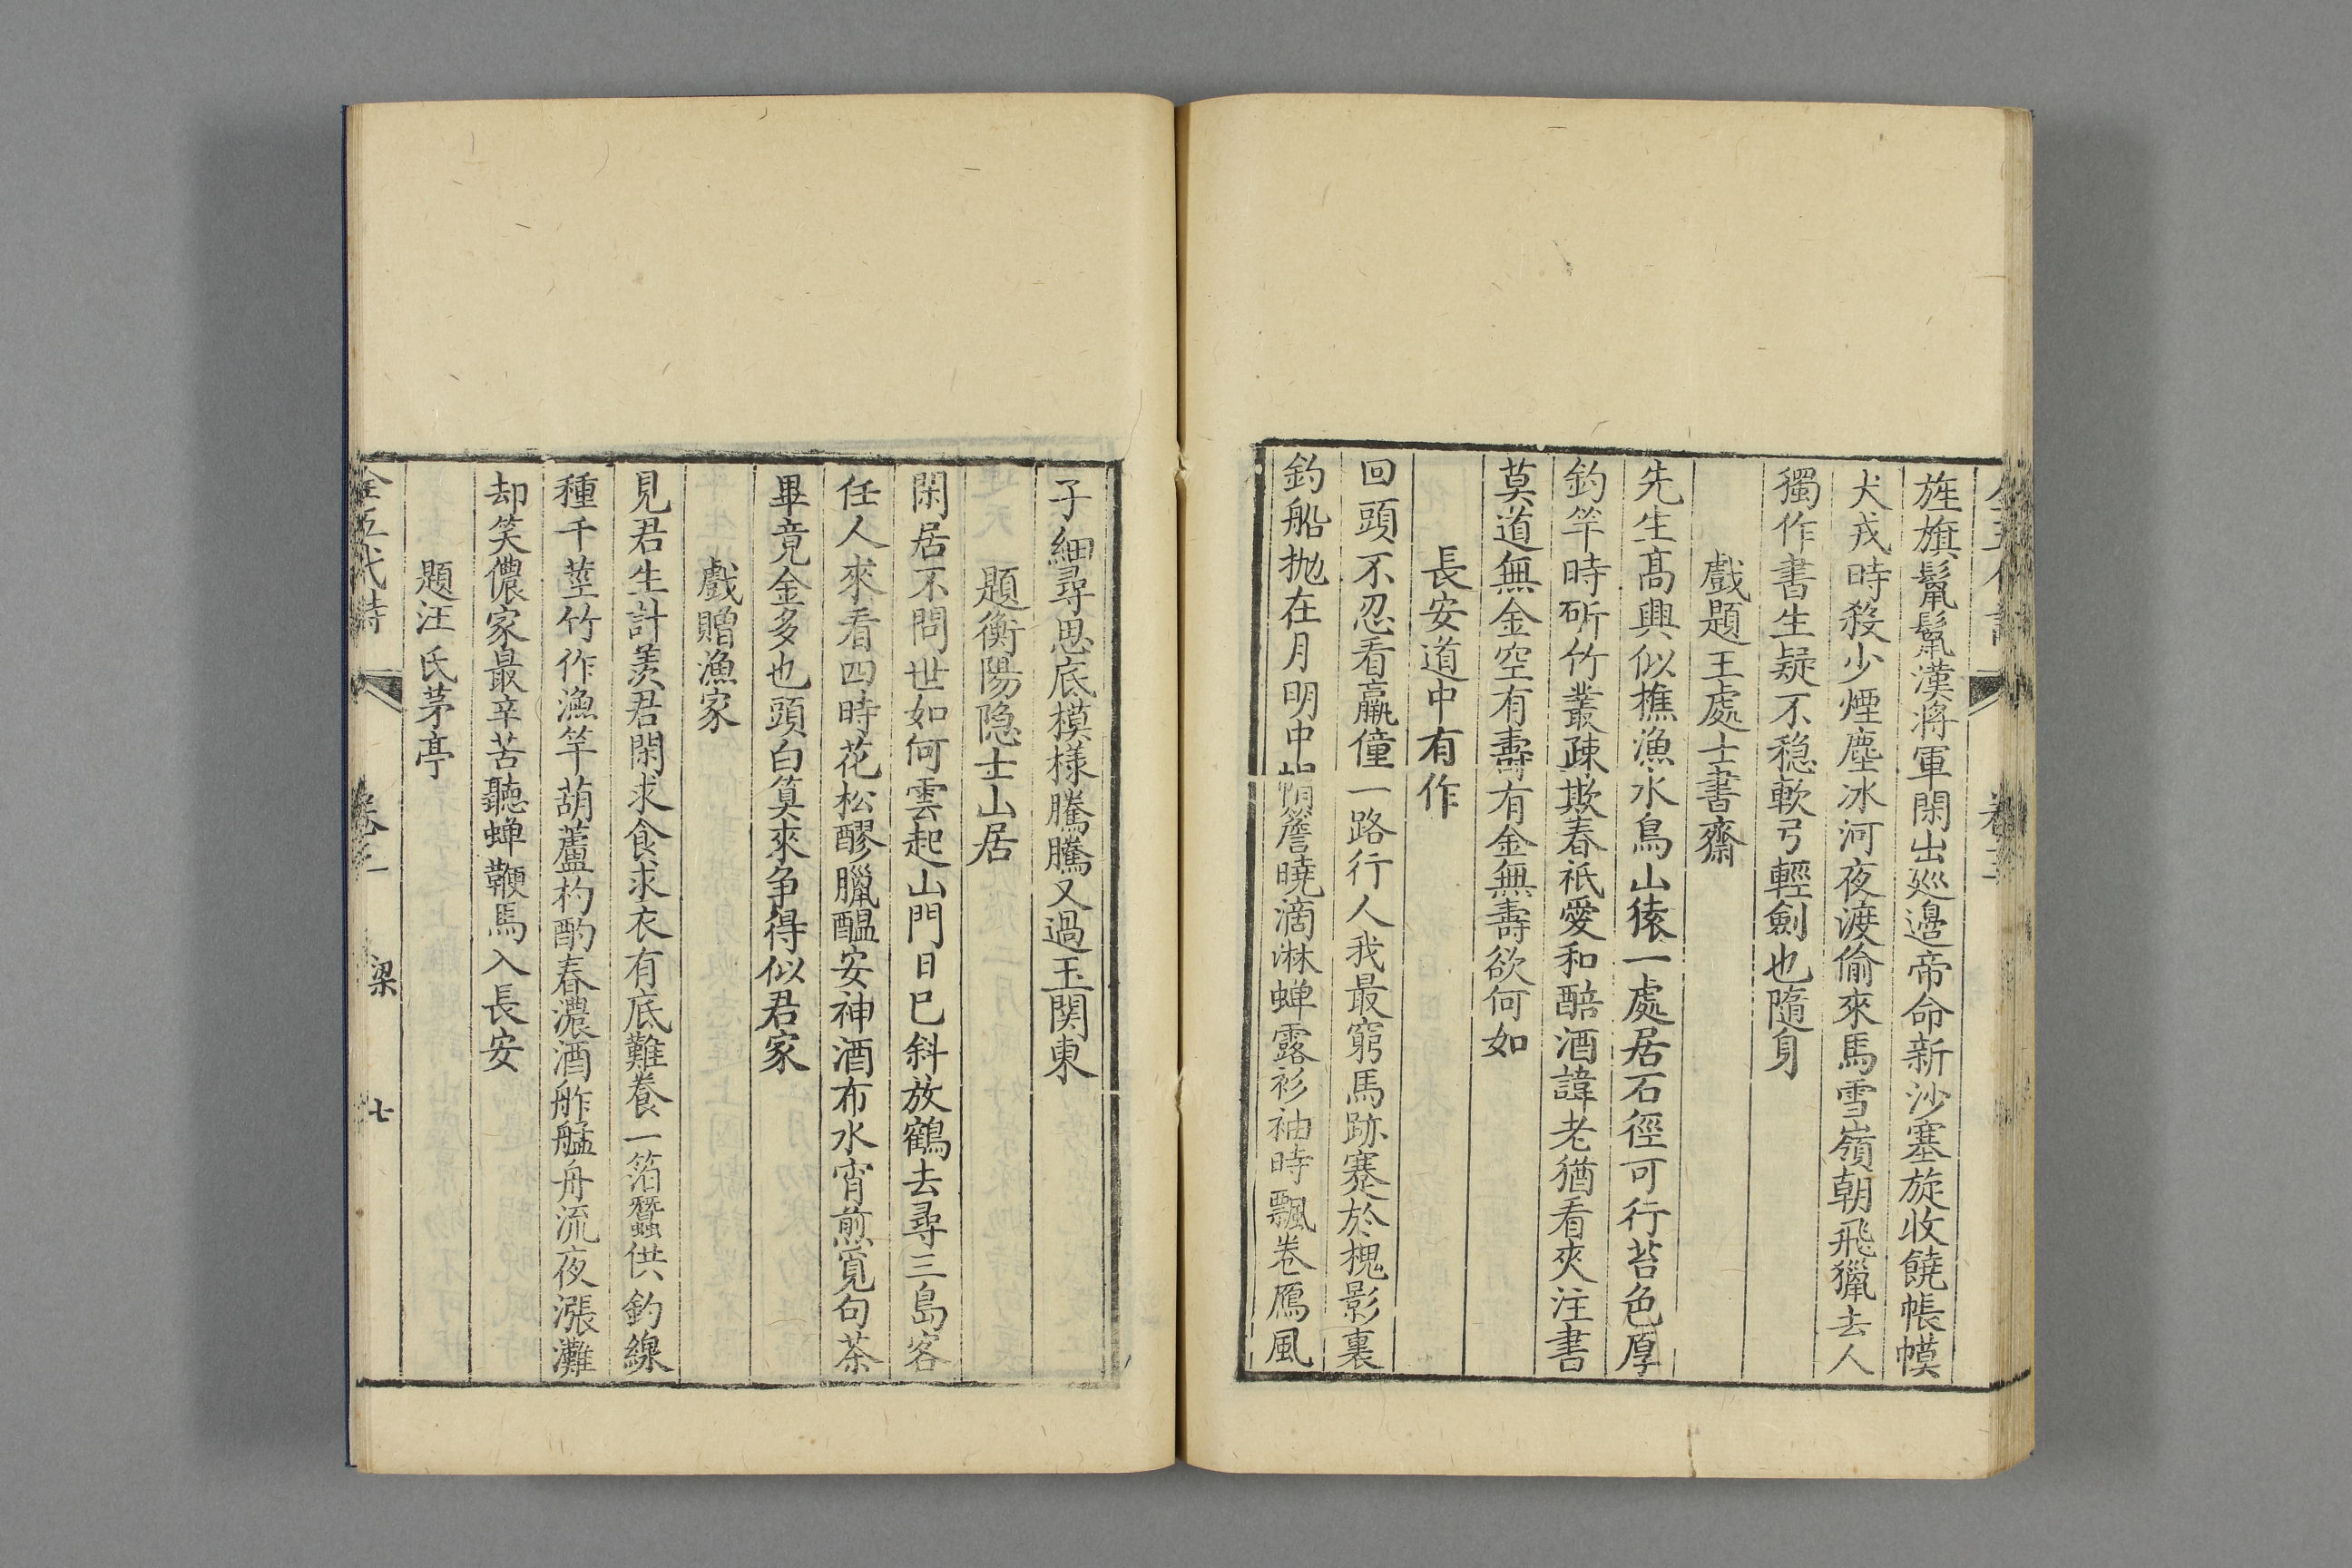 旌旗鬣鬣漢將軍閑出廵邊帝命新沙塞旋收饒帳幙
犬戎時殺少煙塵冰河夜渡偷來馬雪嶺朝飛獵去人
獨作書生疑不穏軟弓輕劍也隨身
戲題王處士書齋
先生髙興似樵漁水鳥山猿一處居石徑可行苔色厚
釣竿時斫竹叢疎欺春祇愛和醅酒諱老猶看夾注書
莫道無金空有壽有金無壽欲何如
長安道中有作
回頭不忍看羸僮一路行人我最窮馬跡蹇於槐影裏
釣船抛在月明中帽簷曉滴淋蟬露衫袖時飄卷鴈風
子細尋思底模樣騰騰又過玉関東
題衡陽隐士山居
閑居不問世如何雲起山門日已斜放鶴去尋三島客
任人來看四時花松醪臘醖安神酒布水宵煎覓句茶
畢竟金多也頭白筭來争得似君家
戲贈漁家
見君生計羨君閑求食求衣有底難養一箔蠶供釣線
種千莖竹作漁竿葫蘆杓酌春濃酒舴艋舟流夜漲灘
却笑儂家最辛苦聽蟬鞭馬入長安
題汪氏茅亭
全五代詩 梁 七